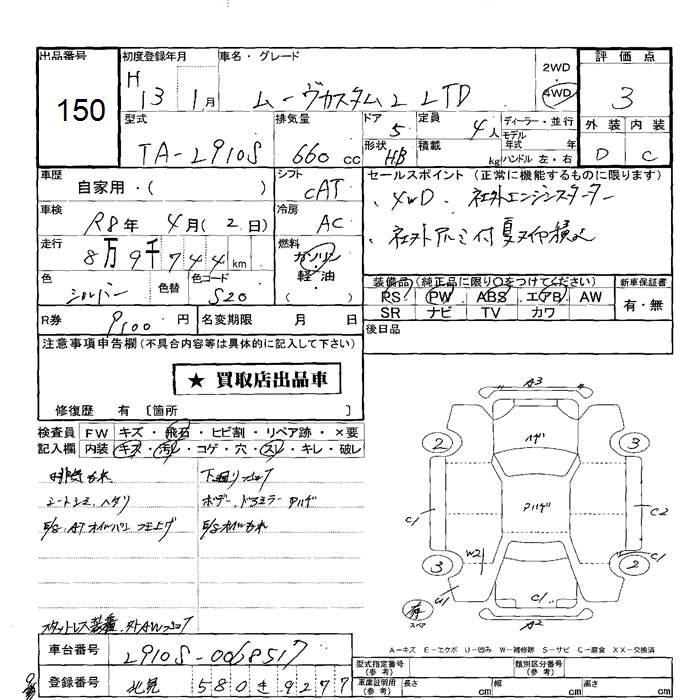 出品番号 初度登録年月 車名・グレード 2WD 評価点
150 H 13 1月 ムーヴカスタム L LTD 4WD 3
型式 排気量 ドア 定員 ディーラー・並行 外装 内装
TA-L910S 660cc 5 4人 モデル年式 年 D C
形状 HB 積載 kg ハンドル 左・右
車歴 シフト セールスポイント (正常に機能するものに限ります)
自家用・( ) CAT ・4WD ・社外エンジンスターター
車検 R8年 4月(2日) 冷房 AC ・社外アルミ付夏タイヤ積込
走行 8万9千744km 燃料 ガソリン 軽油 ( )
色 シルバー 色替 色コード S20
装備品 (純正品に限り○をつけてください) 新車保証書
PS PW ABS エアB AW 有・無
SR ナビ TV カワ
R券 9,100円 名変期限 月 日 後日品
注意事項申告欄 (不具合内容等は具体的に記入して下さい)
★ 買取店出品車
修復歴 有 〔箇所 〕
検査員 FW キズ・飛石・ヒビ割・リペア跡・×要
記入欄 内装 キズ・汚レ・コゲ・穴・スレ・キレ・破レ
下廻り
シートシミ、ヘタリ ボデー、ドアミラー ハゲ
E/G、A/T オイルパン E/Gオイルもれ
スタットレス装着、
A3
ハゲ
2 3
C1 ハゲ C2
W2
3 2
C1
A1 C1
有 スペア A2
A−キズ E−エクボ U−凹み W−補修跡 S−サビ C−腐食 XX−交換済
車台番号 L910S-0068517
型式指定番号(参考) 類別区分番号(参考)
登録番号 北見 580 き 9277
車庫証明用(参考) 長さ cm 幅 cm 高さ cm